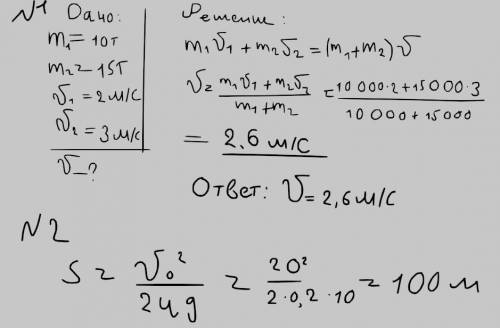 №1 Дано:
m₁ = 10т
m₂ = 15т
v₁ = 2 м/с
v₂ = 3 м/с
v – ?
Решение:
m₁v₁ + m₂v₂ = (m₁+m₂) v
v = (m₁v₁ + m₂v₂)/(m₁+m₂) = (10 000·2+15 000·3)/(10 000+15000)
= 2,6 м/с
Ответ: v = 2,6 м/с
№2
S = v₀²/2μg = 20²/2·0,2·10 = 100 м